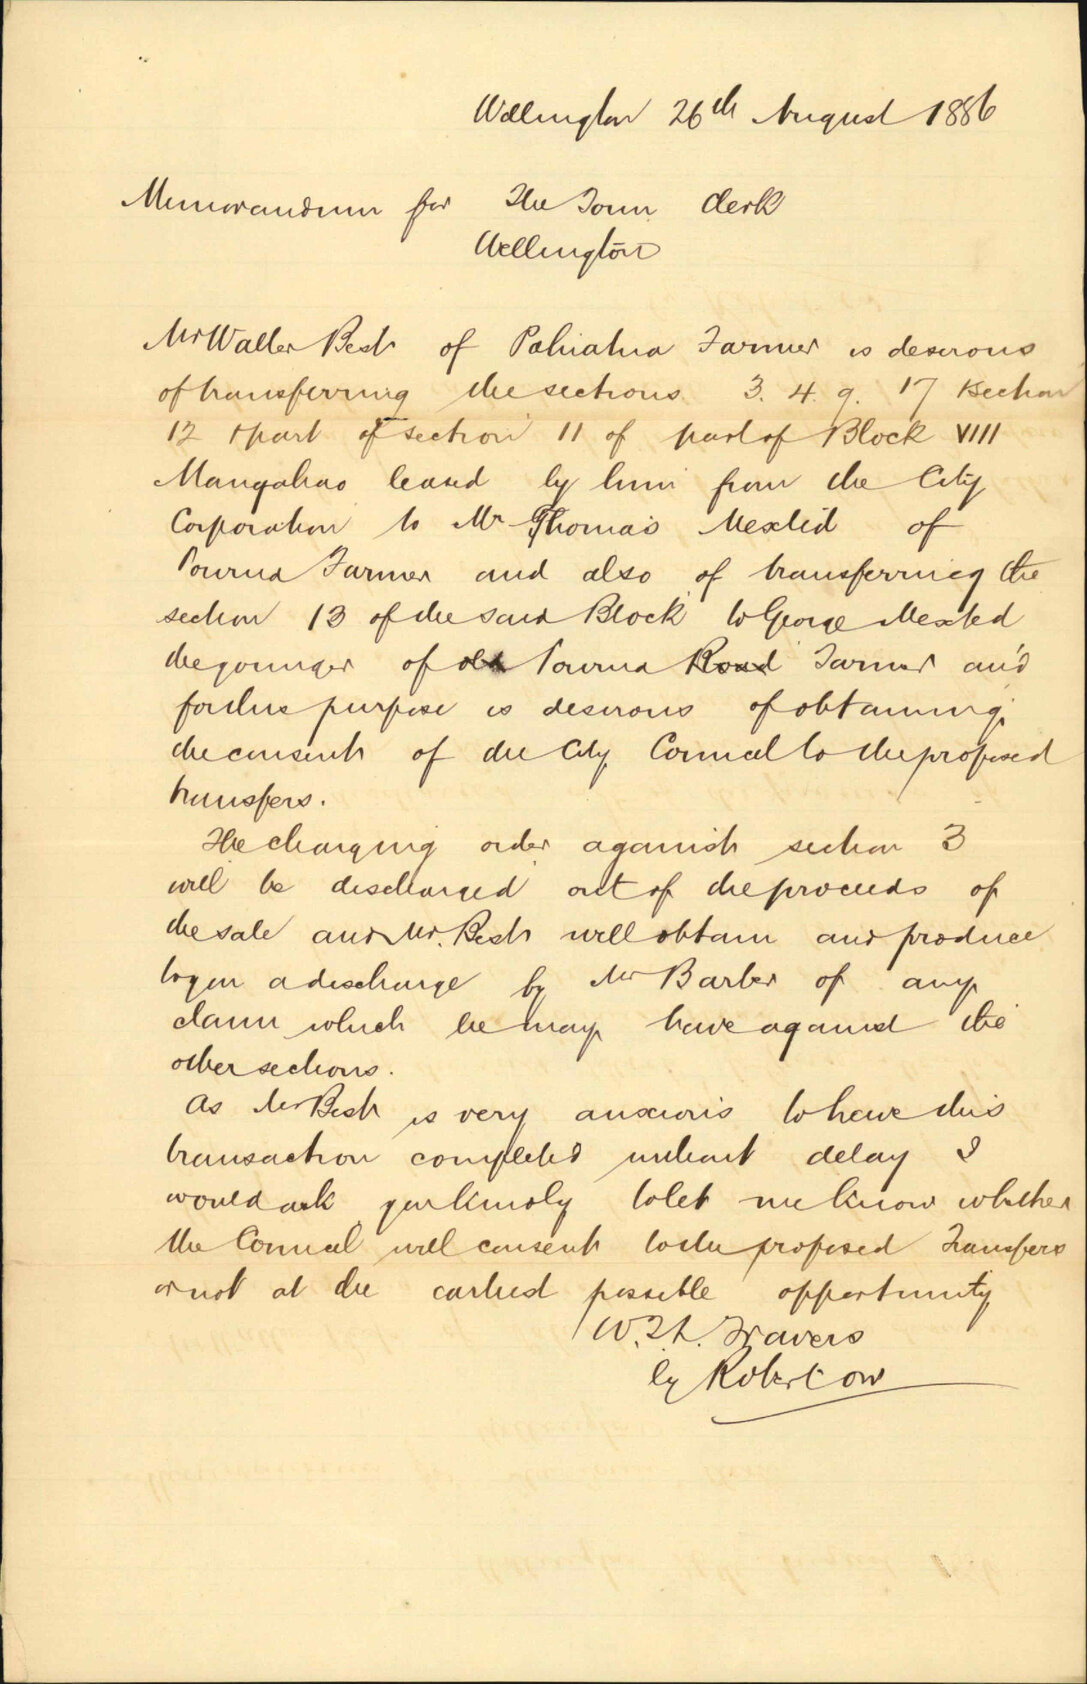 Wellington 26th August 1886
Memorandum for The Town Clerk
Wellington
Mr Walter Best of Pahiatua Farmer is desirous
of transferring the sections 3. 4. 9. 17 & section
12 & part of section 11 of part of Block VIII
Mangahao leased by him from the City
Corporation to Mr Thomas Mexted of
Porirua Farmer and also of transferring the
section 13 of the said Block to George Mexted
the younger of old Porirua Road Farmer and
for this purpose is desirous of obtaining
the consent of the City Council to the proposed
transfers.
The charging order against section 3
will be discharged out of the proceeds of
the sale and Mr. Best will obtain and produce
to you a discharge by Mr Barber of any
claim which he may have against the
other sections.
As Mr Best is very anxious to have this
transaction completed without delay I
would ask you kindly to let me know whether
the Council will consent to the proposed Transfers
or not at the earliest possible opportunity
W.T.L. Travers
by